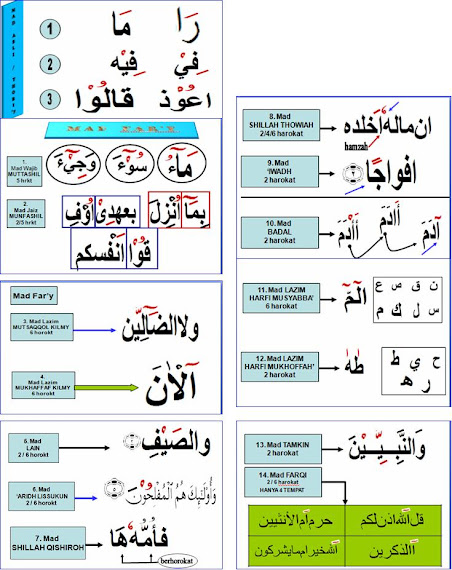 MAD ASLI / THOBI'I
1 مَا رَا
2 فِيْهِ فِيْ
3 قَالُوْا اعُوْذُ
MAD FAR'I
1. Mad Wajib MUTTASHIL 5 hrkt
وَجِيْٓءَ سُوْٓءَ مَآءُ
2. Mad Jaiz MUNFASHIL 2/5 hrkt
بِمَآ اُنْزِلَ بِعَهْدِيْٓ اُوْفِ
قُوْٓا اَنْفُسَكُم
Mad Far'y
3. Mad Lazim MUTSAQQOL KILMY 6 horokt
ولاالضَّآلِّيْن
4. Mad Lazim MUKHAFFAF KILMY 6 horokt
آلْاٰنَ
5. Mad LAIN 2 / 6 horokt
والصَّيْفِ
6. Mad 'ARIDH LISSUKUN 2 / 6 horokt
وَأُولَٰئِكَ هُمُ الْمُفْلِحُونَ ٥
7. Mad SHILLAH QISHIROH
فَأُمُّهُ هَا
berhorokat
8. Mad SHILLAH THOWIAH 2/4/6 harokat
ان مالهٗٓ أخلده
hamzah
9. Mad 'IWADH 2 harokat
افواجًا ٢
10. Mad BADAL 2 harokat
أَأْدَمَ أَأْدَمَ آدَمَ
11. Mad LAZIM HARFI MUSYABBA' 6 horokat
الٓمّٓ
ن ق ص ع
س ل ك م
12. Mad LAZIM HARFI MUKHOFFAH' 2 harokat
طٰهٰ
ح ي ط
ه ر
13. Mad TAMKIN 02 harokat
وَالنَّبِيِّيْنَ
14. Mad FARQI 2 / 6 harokat HANYA 4 TEMPAT
قل آلله اذن لكم
حرم ام الأنثيين
آالذكرين
آلله خير اما يشركون